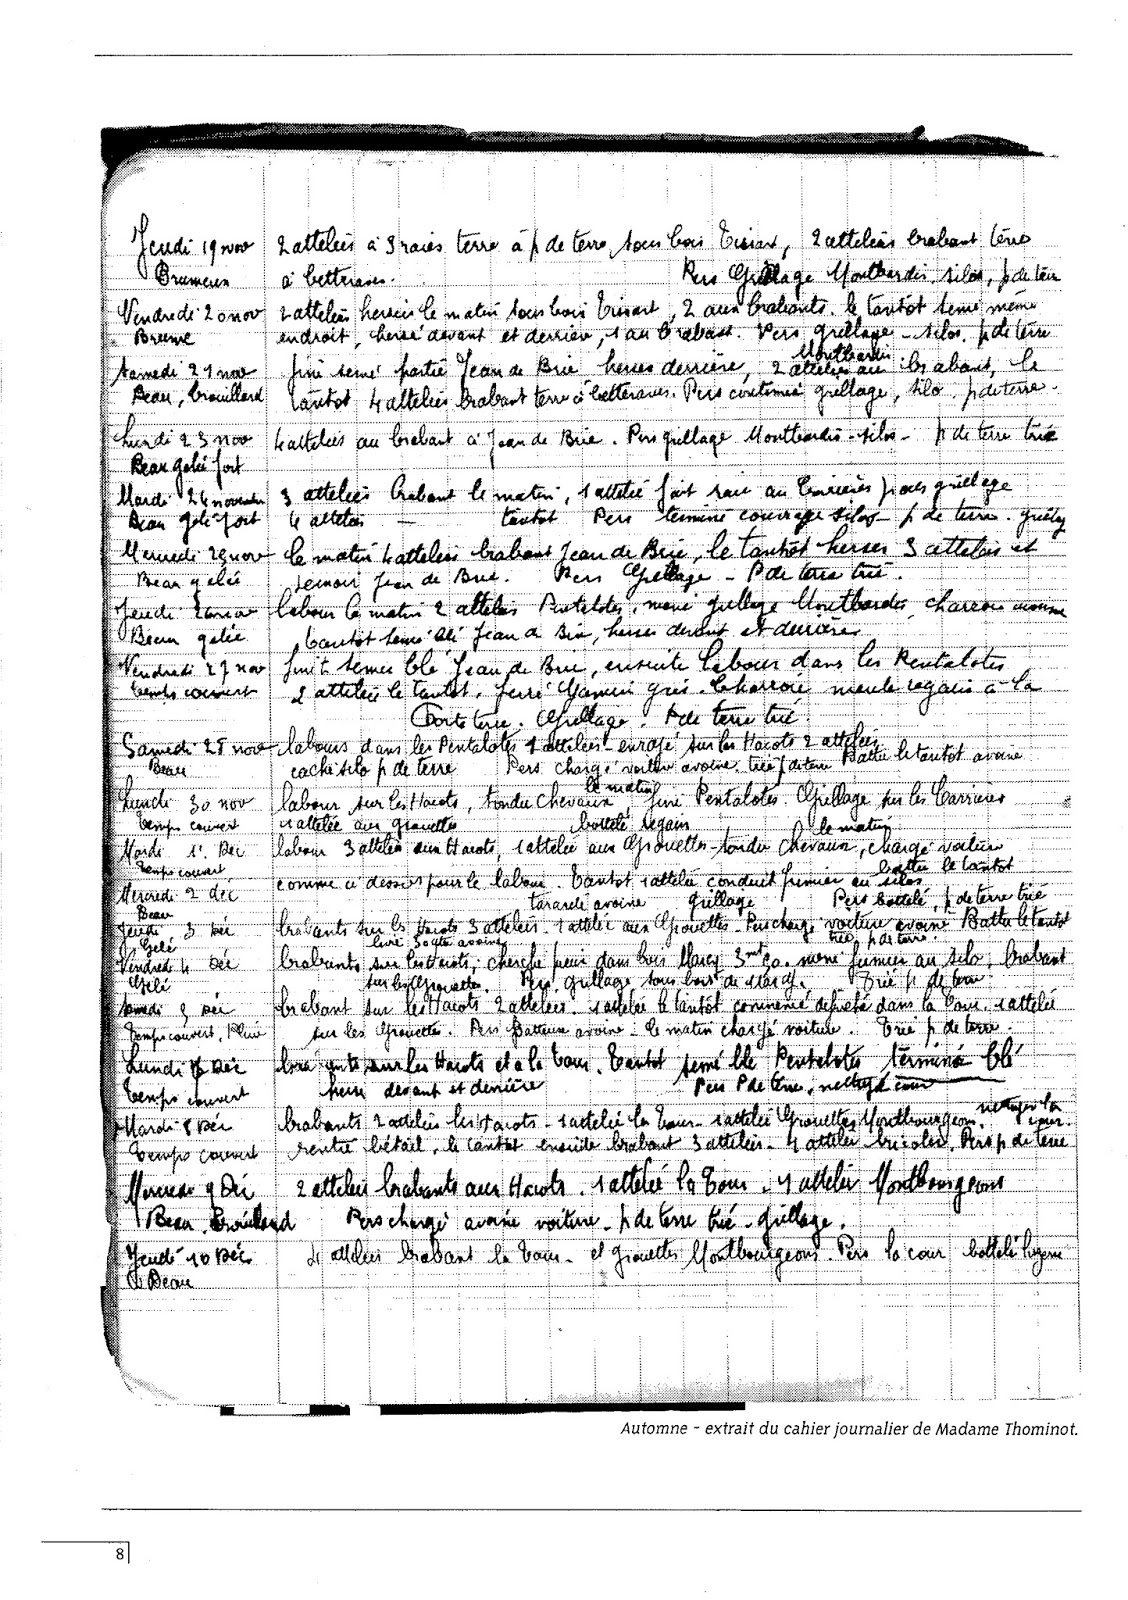 Jeudi 19 nov 2 attelées à 3 raies terre à p de terre, sous bois, 2 attelées brabant terre
Brumeux à betteraves. Pers Grillage Montbardis silos, p de terre
Vendredi 20 nov 2 attelées hersées le matin sous bois, 2 aux brabants. le tantôt semé même
Brume endroit, hersé devant et derrière, 1 au brabant. Pers grillage - silos. p de terre
Montbardis
Samedi 21 nov fini semé partie Jean de Brie herses derrière, 2 attelées au brabant, le
Beau, brouillard tantôt 4 attelées brabant terre à betteraves. Pers continué grillage, silo p de terre.
Lundi 23 nov 4 attelées au brabant à Jean de Brie. Pers grillage Montbardis - silos - p de terre trié
Beau gelé fort
Mardi 24 novembre 3 attelées brabant le matin, 1 attelée fait raie au grillage
Beau gelé fort 4 attelées — tantôt Pers terminé couvrage silos - p de terre.
Mercredi 25 nov le matin 4 attelées brabant Jean de Brie, le tantôt herses 3 attelées et
Beau gelée semoir Jean de Brie. Pers Grillage - P de terre trié.
Jeudi 26 nov labour le matin 2 attelées Pentalotes, mené grillage Montbardis, charroie
Beau gelée tantôt semé blé Jean de Brie, herses devant et derrière
Vendredi 27 nov finit semer blé Jean de Brie, ensuite labour dans les Pentalotes
temps couvert 2 attelées le tantôt. ferré gris. charroié meule regain à la
Porte terre. Grillage. P de terre trié.
Samedi 28 nov labours dans les Pentalotes 1 attelées - enrayé sur les Hacots 2 attelées
Beau caché silo p de terre Pers chargé voiture avoine trié p de terre Battu le tantôt avoine
le matin
Lundi 30 nov labour sur les Hacots, tondu chevaux, fini Pentalotes. Grillage sur les Carrières
temps couvert 1 attelée aux grouettes bottelé regain
le matin
Mardi 1er Déc labour 3 attelées aux Hacots, 1 attelée aux Grouettes - tondu chevaux, chargé voiture
Temps couvert battu le tantôt
Mercredi 2 déc comme ci dessus pour le labour. Tantôt 1 attelée conduit fumier au silos
Beau tararé avoine grillage Pers bottelé, p de terre trié
Jeudi 3 Déc brabants sur les Hacots 3 attelées. 1 attelée aux Grouettes. Pers chargé voiture avoine Battu le tantôt
Gelé livré avoine trié p de terre.
Vendredi 4 Déc brabants sur les Hacots, cherché dans bois mené fumier au silo, brabant
Gelé sur les Grouettes. Pers grillage sous bois de. Trié p de terre
Samedi 5 Déc brabant sur les Hacots 2 attelées. 1 attelée le tantôt commencé dans la Cour. 1 attelée
Temps couvert, Pluie sur les Grouettes. Pers Batteuse avoine - le matin chargé voiture. Trié p de terre.
Lundi 7 Déc brabants sur les Hacots et à la Tour. Tantôt semé blé Pentalotes terminé blé
Temps couvert herse devant et derrière Pers P de terre, nettoyé cour
Mardi 8 Déc brabants 2 attelées les Hacots - 1 attelée la Tour - 1 attelée Grouettes Montbourgeon. nettoyer la cour.
Temps couvert rentré bétail, le tantôt ensuite brabant 3 attelées. 1 attelée bricolé. Pers p de terre
Mercredi 9 Déc 2 attelées brabants aux Hacots. 1 attelée la Tour. 1 attelée Montbourgeons
Beau Brouillard Pers chargé avoine voiture - p de terre trié - grillage.
Jeudi 10 Déc 4 attelées brabant la Tour - et grouettes Montbourgeons. Pers la cour bottelé
Beau
Automne – extrait du cahier journalier de Madame Thominot.
8